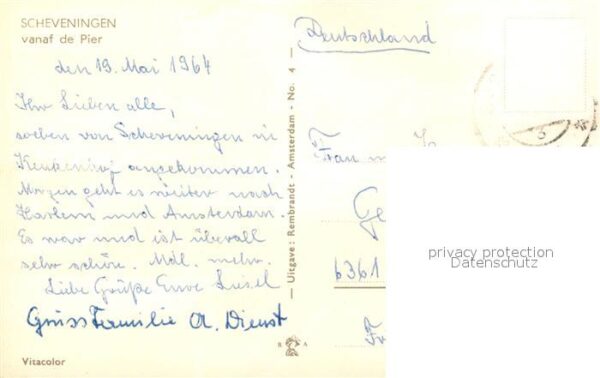 SCHEVENINGEN
vanaf de Pier
den 19. Mai 1964
Ihr Lieben alle,
soeben von Scheveningen in
Keukenhof angekommen.
Morgen geht es weiter nach
Harlem und Amsterdam.
Es war und ist überall
sehr schön. Mdl. mehr.
Liebe Grüße Eure Liesel
Gruss Familie A. Dienst
Vitacolor
Uitgave: Rembrandt - Amsterdam - No. 4 -
R A
Deutschland
Frau
6361
privacy protection
Datenschutz